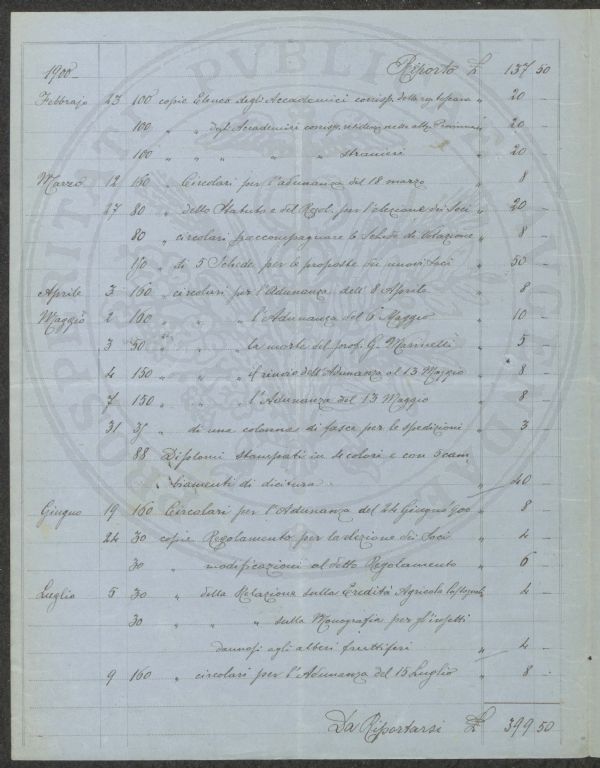 1900 Riporto £ 137 50
Febbrajo 23 100 copie Elenco degli Accademici corrisp. della " 20 –
100 " " degli Accademici corrisp. residenti nelle altre Provincie " 20 –
100 " " " " " stranieri " 20 –
Marzo 12 160 Circolari per l'adunanza del 18 marzo " 8 –
27 80 " dello Statuto e del Regol. per l'elezione dei Soci " 20 –
80 " circolari p accompagnare le Schede di Votazione " 8 –
di 5 Schede per le proposte dei nuovi Soci " 50 –
Aprile 3 160 " circolari per l'Adunanza dell' 8 Aprile " 8 –
Maggio 2 160 " " " l'Adunanza del 6 Maggio " 10 –
3 50 " " " la morte del prof. G. Marinelli " 5 –
4 150 " " " il rinvio dell'Adunanza al 13 Maggio " 8 –
7 150 " " " l'Adunanza del 13 Maggio " 8 –
31 35 " di una colonna di fasce per le spedizioni " 3 –
88 Diplomi stampati in 4 colori e con 3 cam
biamenti di dicitura " 40 –
Giugno 19 160 Circolari per l'Adunanza del 24 Giugno 900 " 8 –
24 30 copie Regolamento per la elezione dei Soci " 4 –
30 " modificazioni al detto Regolamento " 6 –
Luglio 5 30 " della Relazione sulla Eredità Agricola " 4 –
30 " " " sulla Monografia per gl'insetti
dannosi agli alberi fruttiferi " 4 –
9 160 " circolari per l'Adunanza del 15 Luglio " 8 –
Da Riportarsi £ 399 50